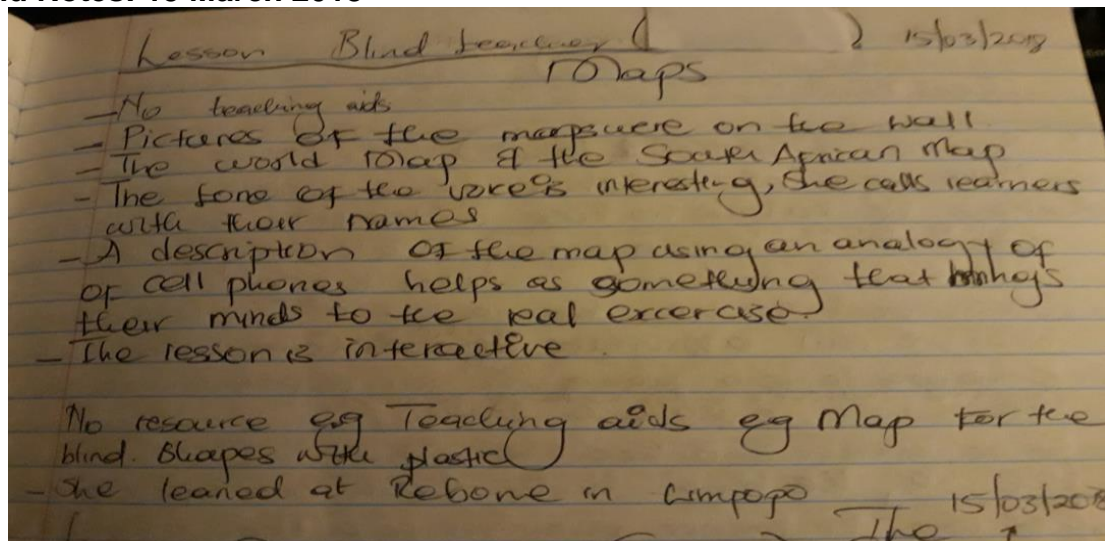 Lesson Blind teacher ( ) 15/03/2018
Maps
- No teaching aids
- Pictures of the maps were on the wall
- The world Map & the South African Map
- The tone of the voice is interesting, she calls learners
with their names
- A description of the map using an analogy of
of cell phones helps as something that
their minds to the real excercise.
- The lesson is interactive.
No resource e.g Teaching aids eg Map for the
blind. Shapes with plastic
- She leaned at Rebone in Limpopo 15/03/2018
The